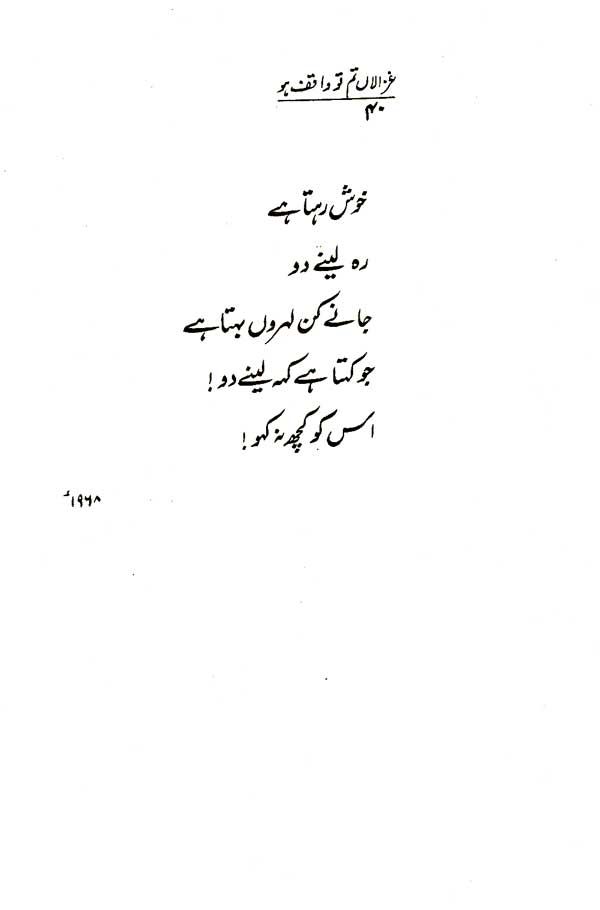 غزالاں تم تو واقف ہو
۴۰
خوش رہتا ہے
رہ لینے دو
جانے کن لہروں بہتا ہے
جو کہتا ہے کہہ لینے دو !
اس کو کچھ نہ کہو !
۱۹۶۸ء